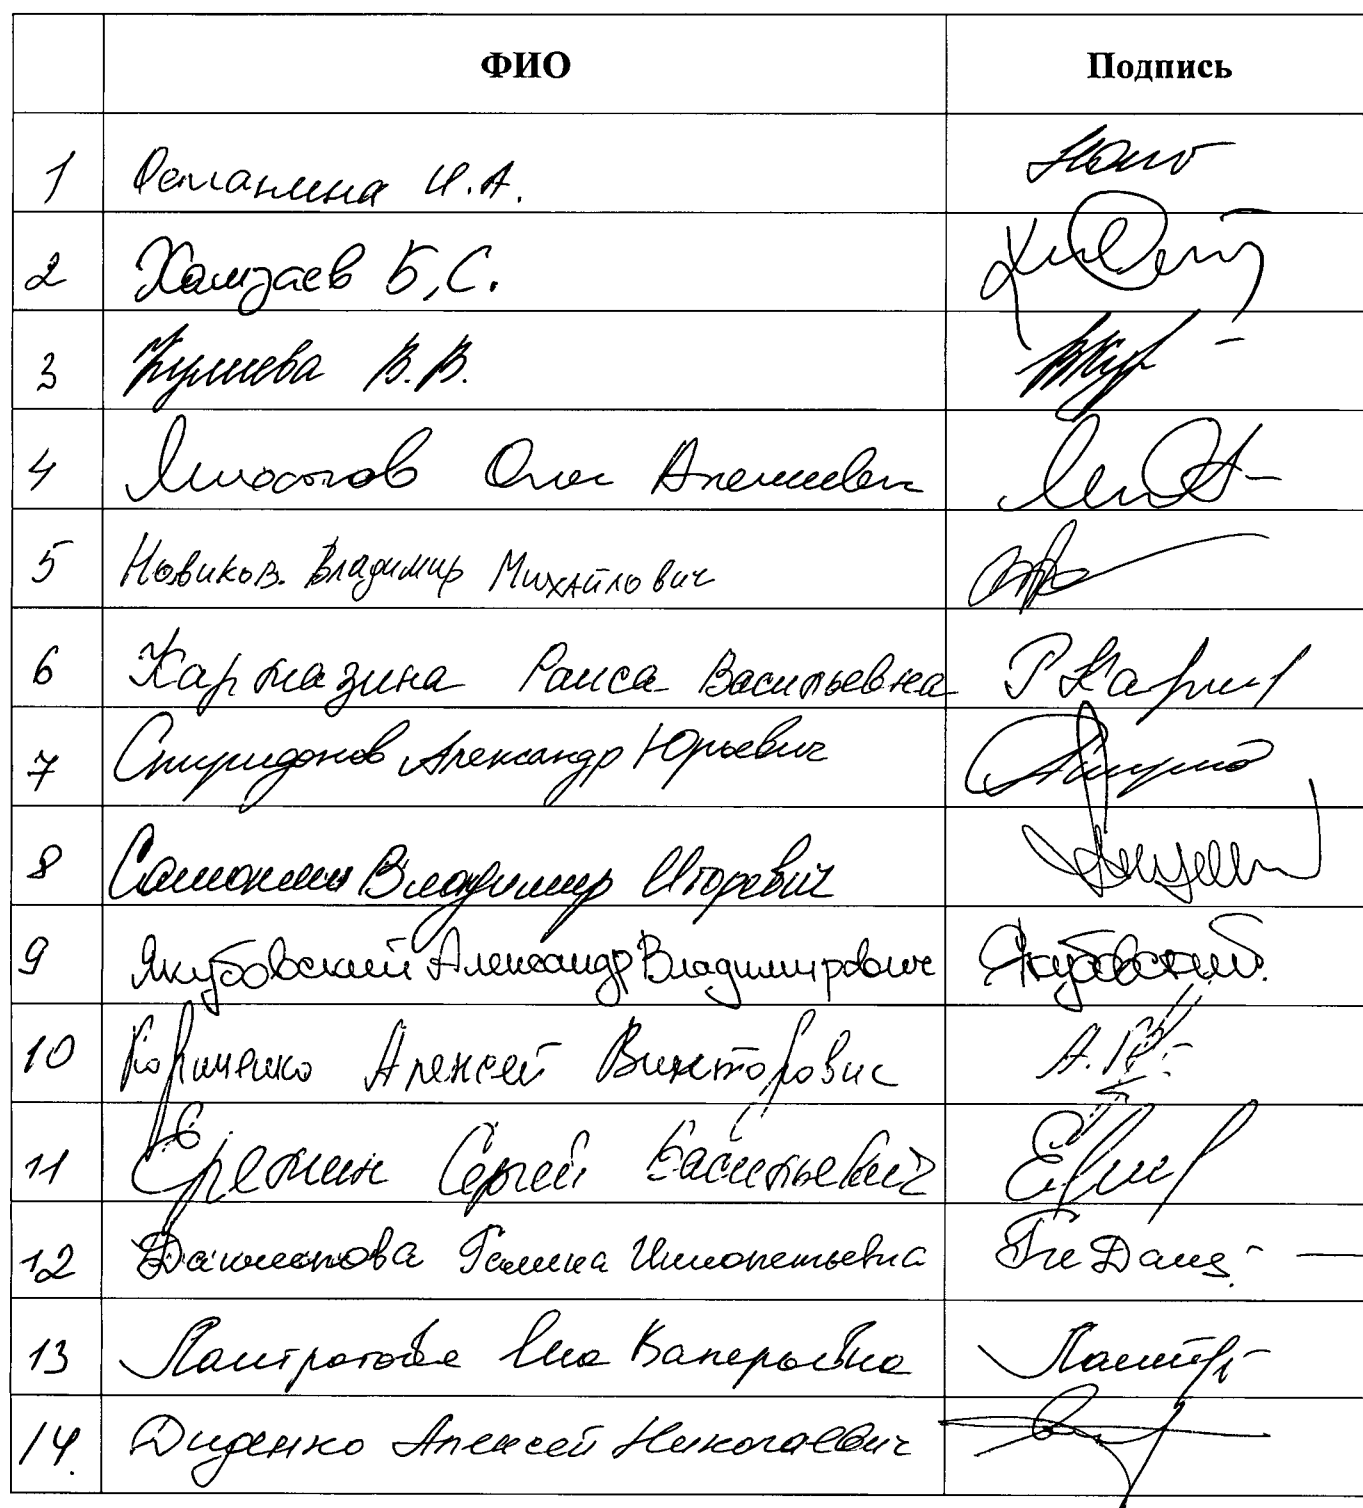 ФИО Подпись
1 Останина Н.А.
2 Хамзаев Б.С.
3 Кулиева В.В.
4 Олег Алексеевич
5 Новиков Владимир Михайлович
6 Кармазина Раиса Васильевна Р Карм
7 Спиридонов Александр Юрьевич
8 Самокиш Владимир Игоревич
9 Якубовский Александр Владимирович Якубовский
10 Корниенко Алексей Викторович А.К
11 Еремин Сергей Васильевич
12 Данчикова Галина Иннокентьевна
13 Ламтратова Валерьевна
14 Диденко Алексей Николаевич